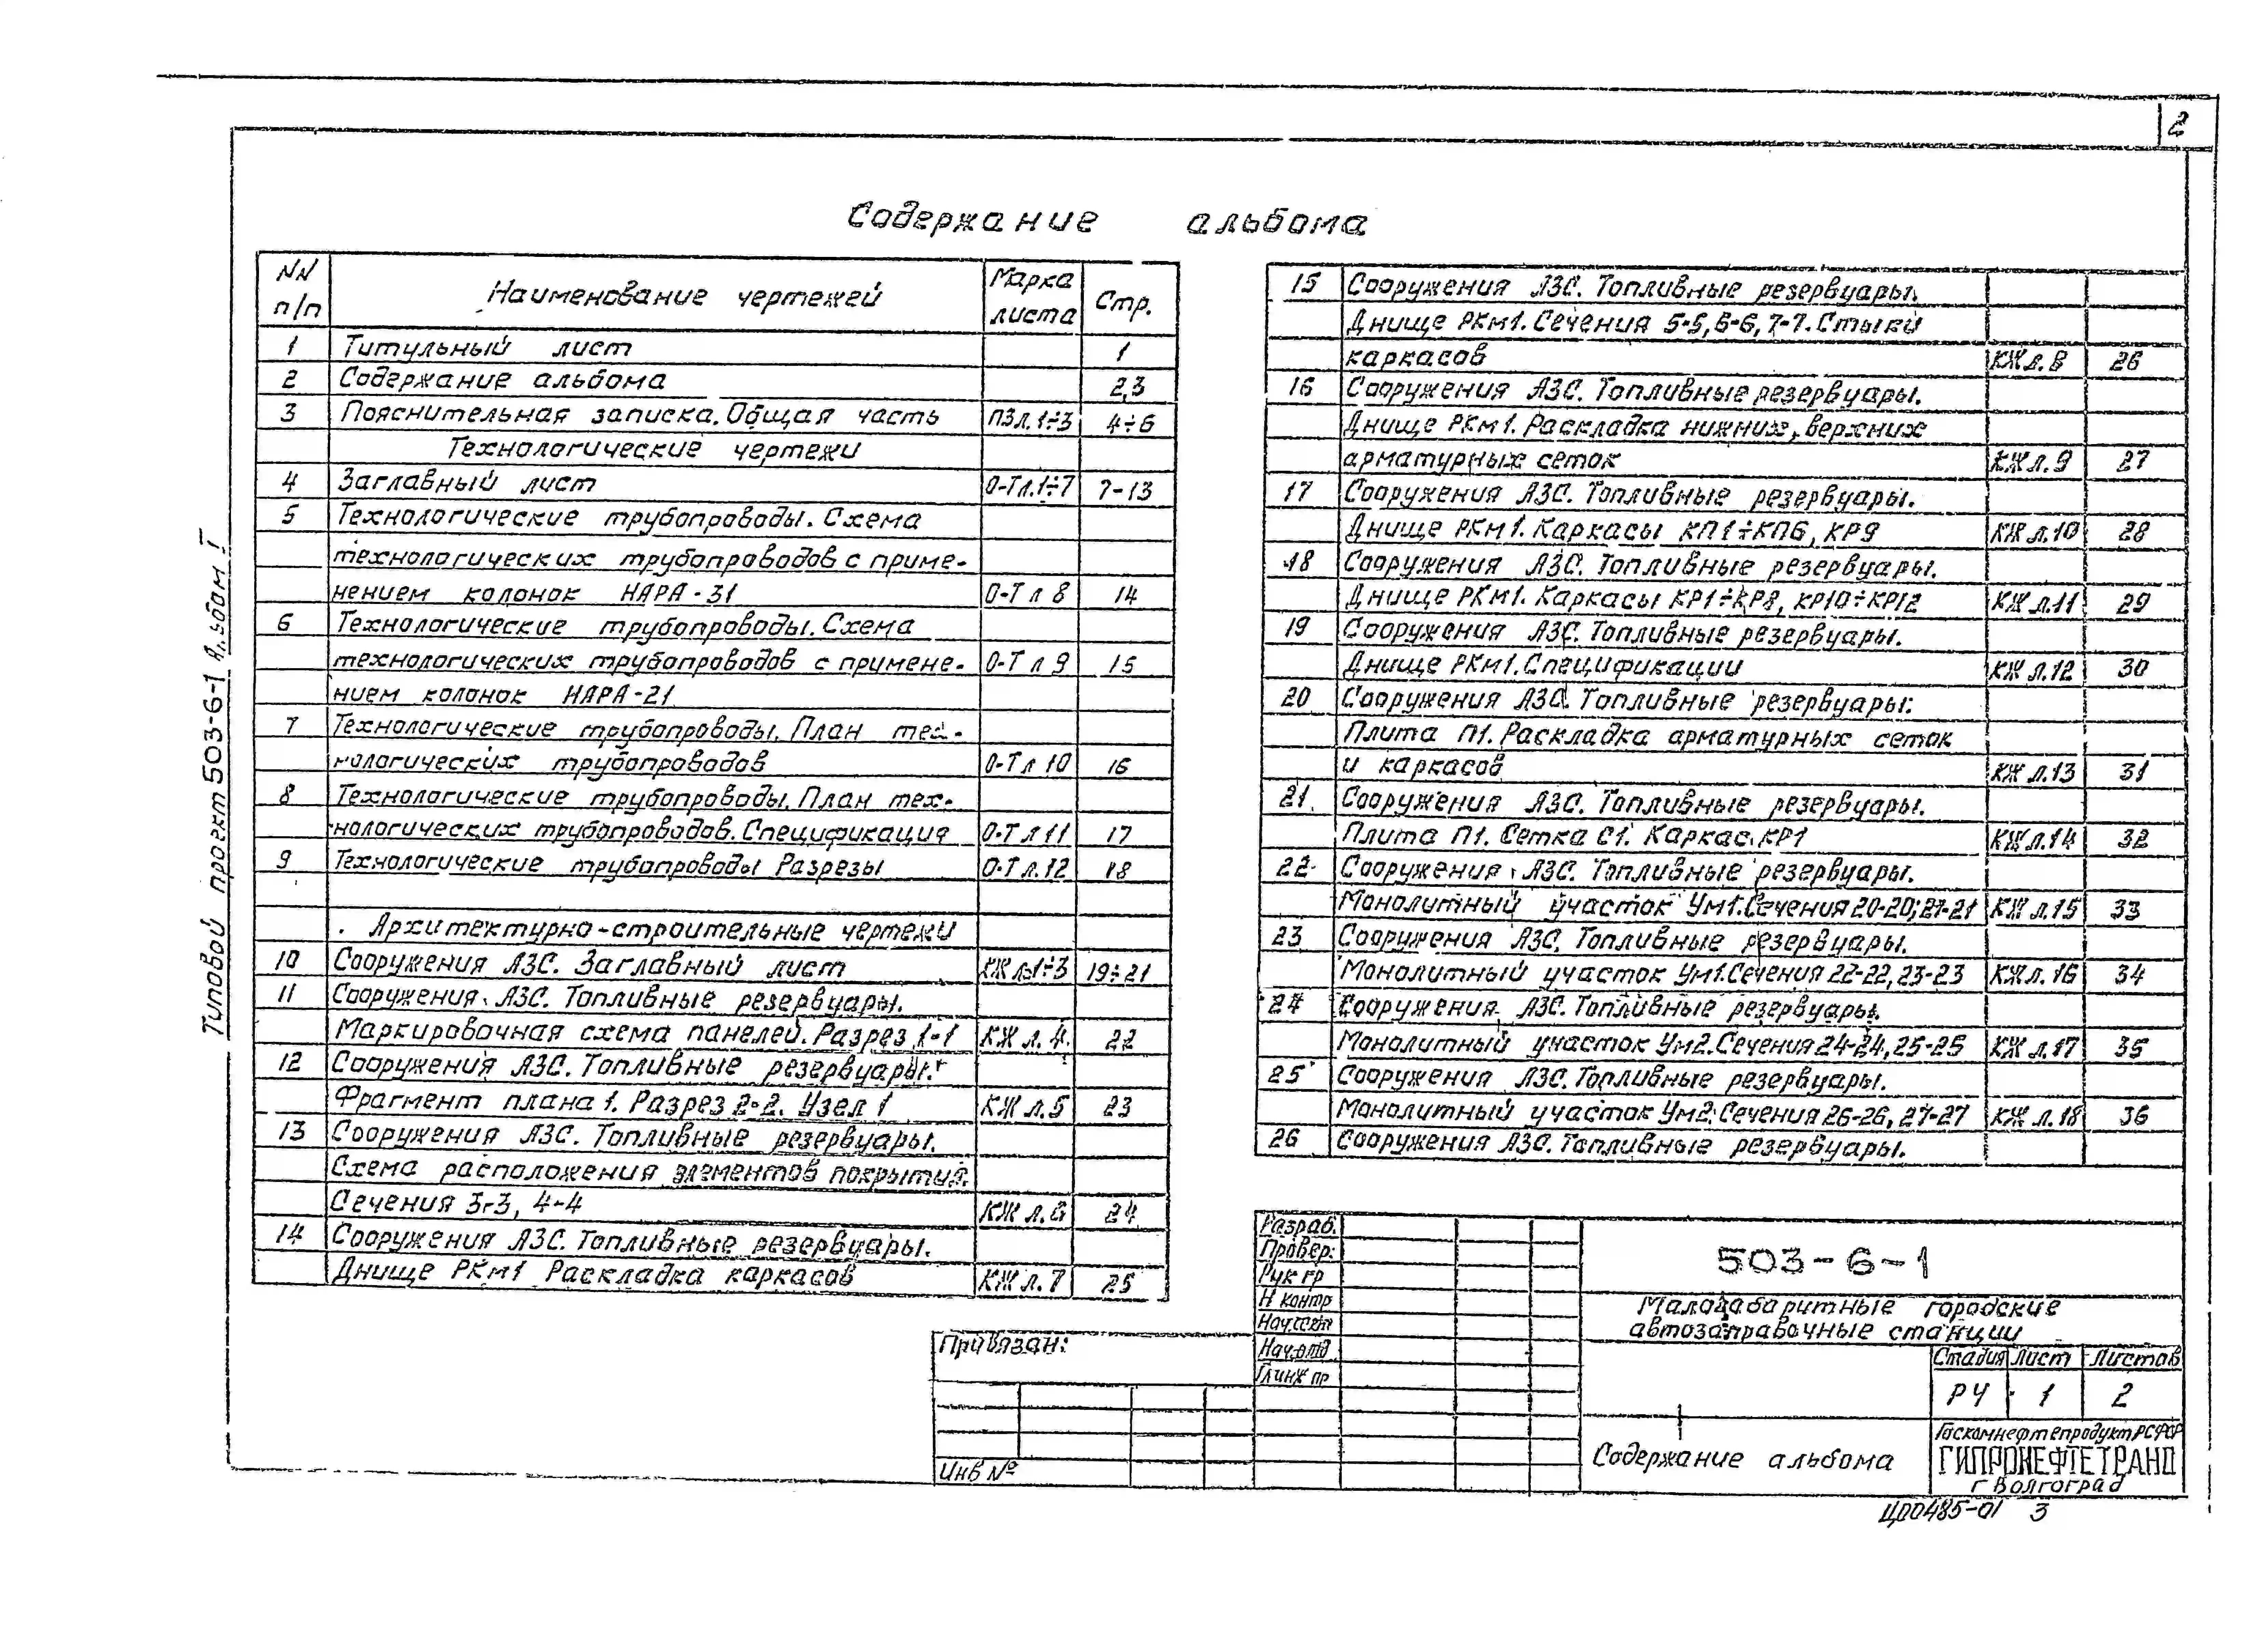 2
Содержание альбома
NN п/п Наименование чертежей Марка листа Стр.
1 Титульный лист 1
2 Содержание альбома 2,3
3 Пояснительная записка. Общая часть ПЗл.1÷3 4÷6
Технологические чертежи
4 Заглавный лист О-Тл.1÷7 7-13
5 Технологические трубопроводы. Схема
технологических трубопроводов с приме-
нением колонок НАРА-31 О-Т л 8 14
6 Технологические трубопроводы. Схема
технологических трубопроводов с примене- О-Т л 9 15
нием колонок НАРА-21
7 Технологические трубопроводы. План тех-
нологических трубопроводов О-Т л 10 16
8 Технологические трубопроводы. План тех-
нологических трубопроводов. Спецификация О-Т л 11 17
9 Технологические трубопроводы Разрезы О-Т л.12 18
Архитектурно-строительные чертежи
10 Сооружения АЗС. Заглавный лист КЖ л.1÷3 19÷21
11 Сооружения АЗС. Топливные резервуары.
Маркировочная схема панелей. Разрез 1-1 КЖ л.4 22
12 Сооружения АЗС. Топливные резервуары.
Фрагмент плана 1. Разрез 2-2. Узел 1 КЖ л.5 23
13 Сооружения АЗС. Топливные резервуары.
Схема расположения элементов покрытия.
Сечения 3-3, 4-4 КЖ л.6 24
14 Сооружения АЗС. Топливные резервуары.
Днище РКм1 Раскладка каркасов КЖ л.7 25
15 Сооружения АЗС. Топливные резервуары.
Днище РКм1. Сечения 5-5, 6-6, 7-7. Стыки
каркасов КЖ л.8 26
16 Сооружения АЗС. Топливные резервуары.
Днище РКм1. Раскладка нижних, верхних
арматурных сеток КЖ л.9 27
17 Сооружения АЗС. Топливные резервуары.
Днище РКм1. Каркасы КП1÷КП6, КР9 КЖ л.10 28
18 Сооружения АЗС. Топливные резервуары.
Днище РКм1. Каркасы КР1÷КР8, КР10÷КР12 КЖ л.11 29
19 Сооружения АЗС. Топливные резервуары.
Днище РКм1. Спецификации КЖ л.12 30
20 Сооружения АЗС. Топливные резервуары.
Плита П1. Раскладка арматурных сеток
и каркасов КЖ л.13 31
21 Сооружения АЗС. Топливные резервуары.
Плита П1. Сетка С1. Каркас КР1 КЖ л.14 32
22 Сооружения АЗС. Топливные резервуары.
Монолитный участок Ум1. Сечения 20-20; 21-21 КЖ л.15 33
23 Сооружения АЗС. Топливные резервуары.
Монолитный участок Ум1. Сечения 22-22, 23-23 КЖ л.16 34
24 Сооружения АЗС. Топливные резервуары.
Монолитный участок Ум2. Сечения 24-24, 25-25 КЖ л.17 35
25 Сооружения АЗС. Топливные резервуары.
Монолитный участок Ум2. Сечения 26-26, 27-27 КЖ л.18 36
26 Сооружения АЗС. Топливные резервуары.
Типовой проект 503-6-1 Альбом I
Привязан:
Инв №
Разраб.
Провер.
Рук гр
Н контр
Нач.сект
Нач.отд
Гл инж пр
503-6-1
Малогабаритные городские
автозаправочные станции
Стадия Лист Листов
РЧ 1 2
Содержание альбома
Госкомнефтепродукт РСФСР
ГИПРОНЕФТЕТРАНС
г Волгоград
ЦП0485-01 3